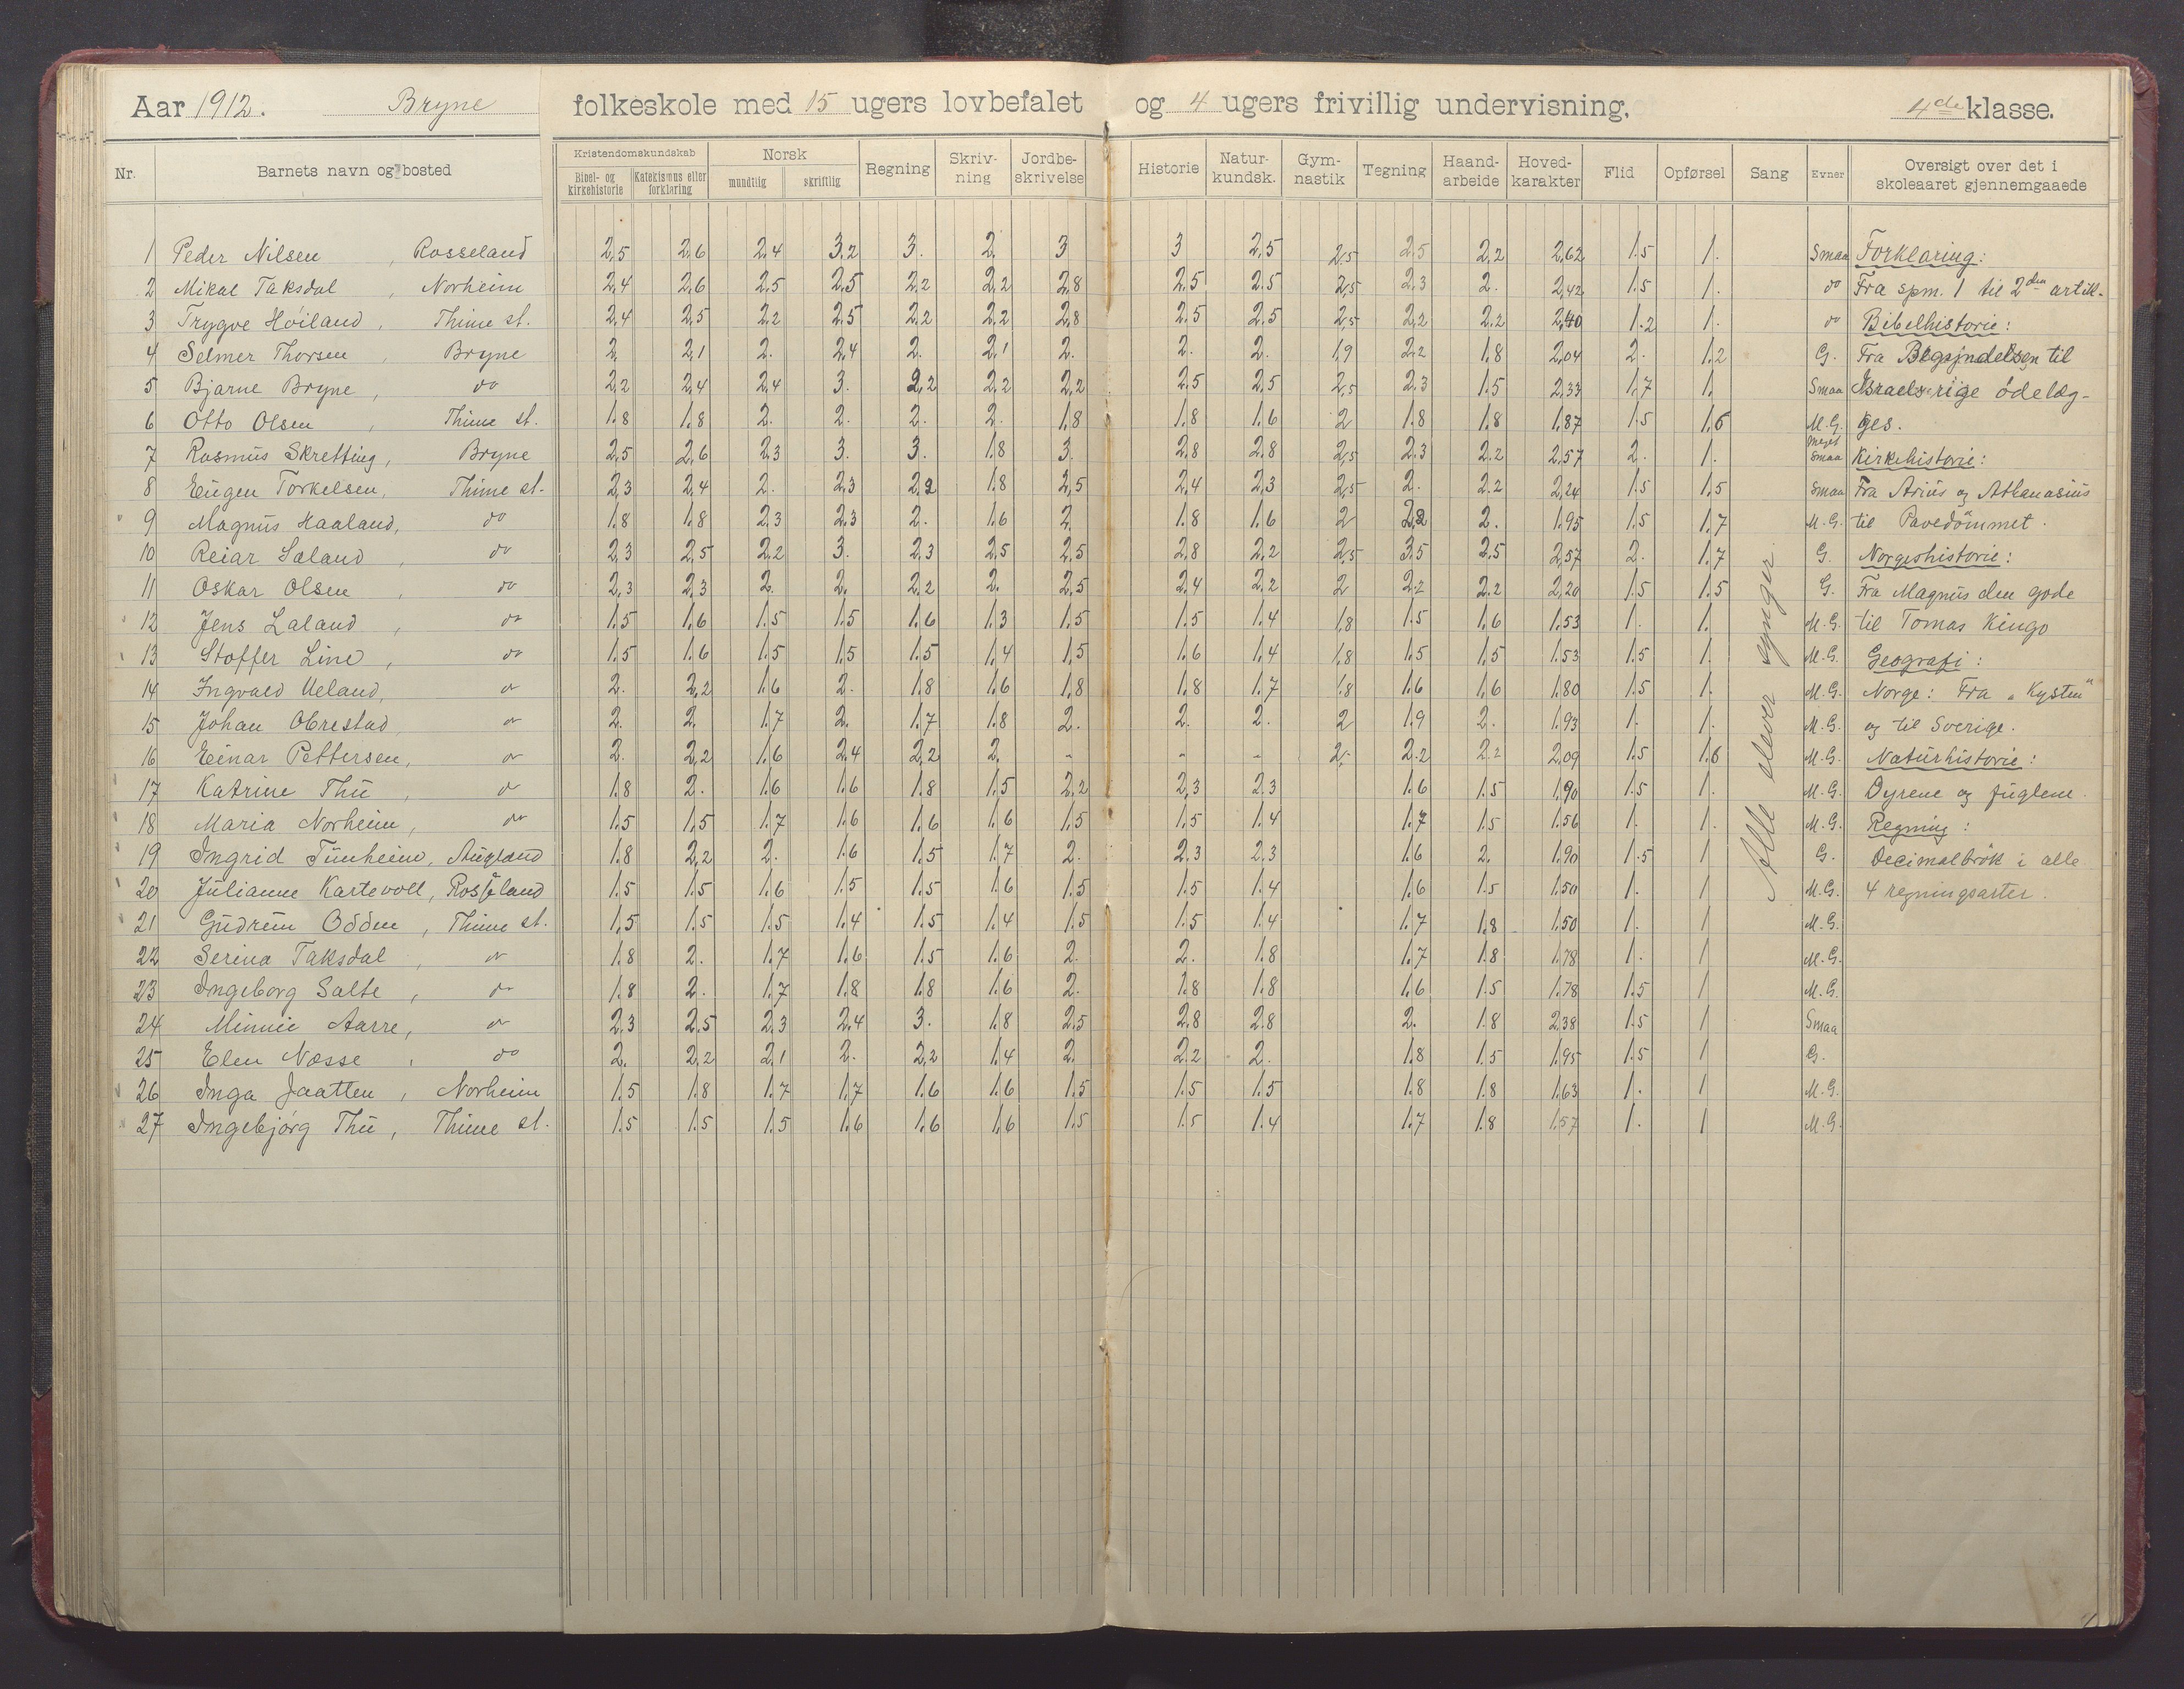 Aar 1912. Bryne folkeskole med 15 ugers lovbefalet og 4 ugers frivillig undervisning, 4de klasse.
Nr. Barnets navn og bosted Kristendomskundskab Bibel- og kirkehistorie Katekismus eller forklaring Norsk mundtlig skriftlig Regning Skriv-ning Jordbe-skrivelse Historie Natur-kundsk. Gym-nastik Tegning Haand-arbeide Hoved-karakter Flid Opførsel Sang Evner Oversigt over det i skoleaaret gjennemgaaede
1 Peder Nilsen, Rosseland 2,5 2,6 2,4 3,2 3. 2. 3 3 2,5 2,5 2,5 2,2 2,62 1.5 1. Smaa Forklaring:
2 Mikal Taksdal, Norheim 2,4 2,6 2,5 2,5 2,2 2,2 2,8 2,5 2,5 2,5 2,3 2. 2,42 1.5 1. do Fra spm. 1 til 2den artik.
3 Trygve Høiland, Thime st. 2,4 2,5 2,2 2,5 2,2 2,2 2,8 2,5 2,5 2,5 2,2 2,2 2,40 1.2 1. do Bibelhistorie:
4 Selmer Thorsen, Bryne 2. 2,1 2. 2,4 2. 2,1 2. 2. 2. 1,9 2,2 1,8 2,04 2. 1,2 G. Fra Begyndelsen til
5 Bjarne Bryne, do 2,2 2,4 2,4 3. 2,2 2,2 2,2 2,5 2,5 2,5 2,3 1.5 2,33 1,7 1. Smaa Israels rige ödelæg-
6 Otto Olsen, Thime st. 1,8 1,8 2. 2. 2. 2. 1,8 1,8 1,6 2 1,8 1,8 1,87 1.5 1,6 M.G. ges.
7 Rasmus Skretting, Bryne 2,5 2,6 2,3 3. 3. 1.8 3. 2,8 2,8 2,5 2,3 2,2 2,57 2. 1. meget Smaa Kirkehistorie:
8 Eugen Torkelsen, Thime st. 2,3 2,4 2. 2,3 2,2 1,8 2,5 2,4 2,3 2,5 2. 2.2 2,24 1.5 1,5 Smaa Fra Arius og Athanasius
9 Magnus Haaland, do 1,8 1,8 2,3 2,3 2. 1,6 2. 1,8 1,6 2 2,2 2. 1,95 1.5 1,7 M.G. til Pavedömmet.
10 Reiar Laland, do 2,3 2,5 2,2 3. 2,3 2,5 2,5 2,8 2,2 2,5 3,5 2,5 2,57 2. 1,7 G. Norgeshistorie:
11 Oskar Olsen, do 2,3 2,3 2. 2. 2,2 2. 2,5 2,4 2,2 2 2.2 2,2 2,20 1.5 1.5 G. Fra Magnus den gode
12 Jens Laland, do 1.5 1,6 1.5 1.5 1.6 1,3 1.5 1.5 1.4 1,8 1.5 1,6 1.53 1. 1. M.G. til Tomas Kingo
13 Stoffer Line, do 1.5 1.6 1.5 1.5 1.5 1.4 1.5 1.6 1.4 1,8 1.5 1.5 1.53 1.5 1. M.G. Geografi:
14 Ingvald Ueland, do 2. 2,2 1.6 2. 1.8 1.6 1.8 1.8 1.7 1,8 1.6 1.6 1.80 1.5 1. M.G. Norge: Fra „Kysten"
15 Johan Obrestad do 2. 2. 1.7 2. 1.7 1.8 2. 2. 2. 2 1.9 2. 1.93 1. 1. M.G. og til Sverige.
16 Einar Pettersen, do 2. 2,2 1.6 2.4 2,2 2. - - - 2,- 2.2 2.2 2,09 1.5 1.6 M.G. Naturhistorie:
17 Katrine Thu, do 1.8 2. 1.6 1.6 1.8 1.5 2.2 2,3 2.3 1.6 1.5 1,90 1.5 1. M.G. Dyrene og fuglene.
18 Maria Norheim, do 1.5 1.5 1.7 1.6 1.6 1.6 1.5 1.5 1.4 1.7 1.5 1.56 1. 1. M.G. Regning:
19 Ingrid Tunheim, Augland 1.8 2,2 2. 1.6 1.5 1.7 2. 2.3 2.3 1.6 2. 1.90 1.5 1 G. Decimalbrök i alle
20 Julianne Kartevoll, Rosseland 1.5 1.5 1.6 1.5 1.5 1.6 1.5 1.5 1.4 1.6 1.5 1.50 1. 1 M.G. 4 regningsarter.
21 Gudrun Odden, Thime st. 1,5 1.5 1.5 1.4 1.5 1.4 1.5 1.5 1.4 1.7 1,8 1.50 1. 1 M.G.
22 Serina Taksdal, do 1.8 2. 1.7 1.6 1.5 1.6 2. 2. 1.8 1.7 1.8 1.78 1. 1 M.G.
23 Ingeborg Salte, do 1.8 2. 1.7 1.8 1.8 1.6 2. 1.8 1.8 1.6 1.5 1.78 1.5 1 M.G.
24 Minnie Aarre, do 2,3 2,5 2,3 2,4 3. 1.8 2,5 2,8 2,8 2. 1.8 2,38 1.5 1 Smaa
25 Elen Næsse, do 2. 2,2 2,1 2. 2,2 1.4 2. 2.2 2. 1.8 1.5 1.95 1.5 1 G.
26 Inga Jaatten, Norheim 1.5 1.8 1.7 1.7 1.6 1.6 1.5 1.5 1.5 1.8 1.8 1.63 1. 1 M.G.
27 Ingebjörg Thu, Thime st. 1.5 1.5 1.5 1.6 1.6 1.6 1.5 1.5 1.4 1.7 1.8 1.57 1. 1 M.G.
Alle elever synger